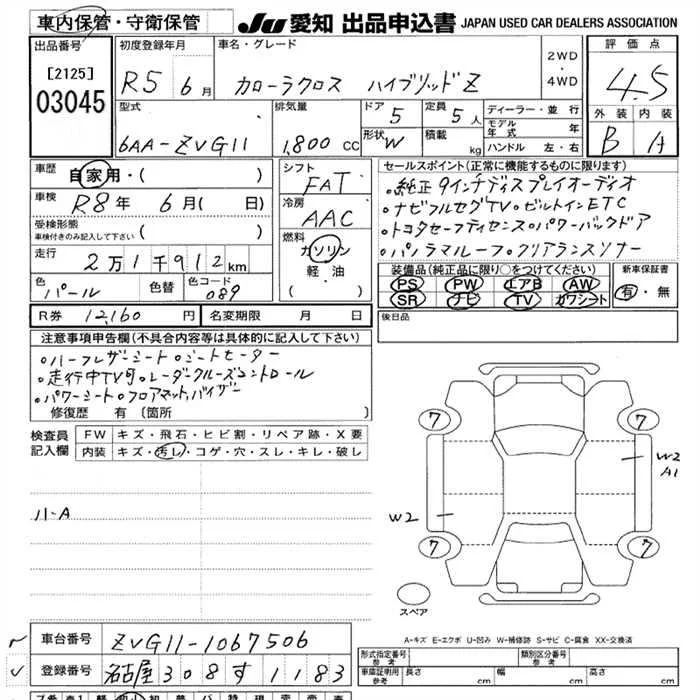 車内保管・守衛保管
JU 愛知 出品申込書 JAPAN USED CAR DEALERS ASSOCIATION
出品番号
[2125]
03045
初度登録年月
R5 6月
車名・グレード
カローラクロス ハイブリッドZ
2WD
・
4WD
評価点
4.5
外装 内装
B A
型式
6AA-ZVG11
排気量
1,800 CC
ドア 5
定員 5人
形状 W
積載 kg
ディーラー・並行
モデル年式 年
ハンドル 左・右
車歴
自家用・( )
車検
R8年 6月( 日)
受検形態
車検付きのみ記入して下さい ( )
走行
2万1千912km
色
パール
色替
色コード
089
シフト
FAT
冷房
AAC
燃料
ガソリン
軽・油
( ・ )
セールスポイント(正常に機能するものに限ります)
・純正9インチディスプレイオーディオ
・ナビフルセグTV・ビルトインETC
・トヨタセーフティセンス・パワーバックドア
・パノラマルーフ・クリアランスソナー
装備品(純正品に限り○をつけてください)
PS PW エアB AW
SR ナビ TV カワシート
新車保証書
有・無
R券 12,160 円
名変期限 月 日
後日品
注意事項申告欄(不具合内容等は具体的に記入して下さい)
・ハーフレザーシート・シートヒーター
・走行中TV可・レーダークルーズコントロール
・パワーシート・フロアマット,バイザー
修復歴 有 〔箇所 〕
検査員
記入欄
FW キズ・飛石・ヒビ割・リペア跡・X要
内装 キズ・汚レ・コゲ・穴・スレ・キレ・破レ
ハ-A
7
7
W2
A1
W2
7
7
スペア
A-キズ E-エクボ U-凹み W-補修跡 S-サビ C-腐食 XX-交換済
車台番号
ZVG11-1067506
登録番号
名古屋 308 す 1183
形式指定番号
参考
類別区分番号
参考
車庫証明用
参考
長さ cm
幅 cm
高さ cm